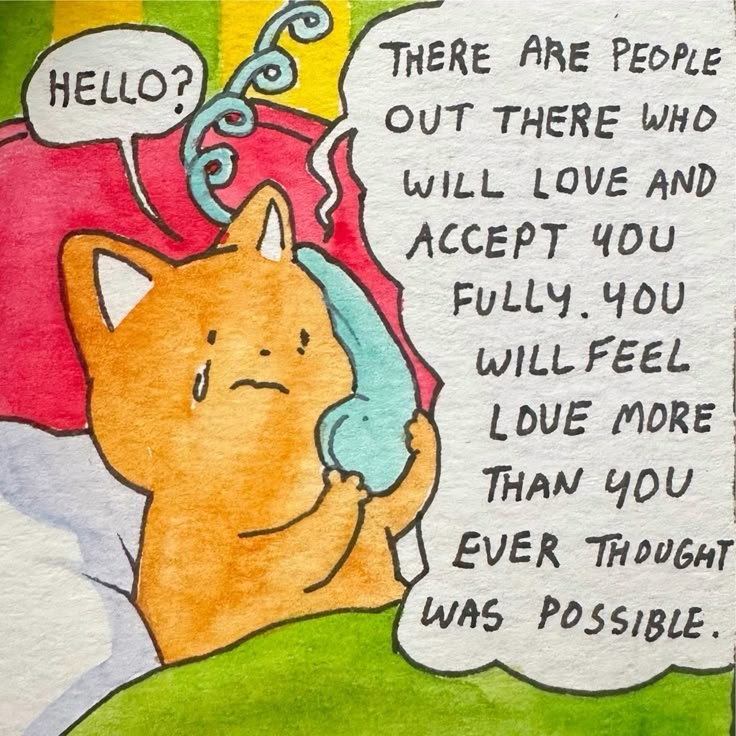 HELLO?
THERE ARE PEOPLE
OUT THERE WHO
WILL LOVE AND
ACCEPT YOU
FULLY. YOU
WILL FEEL
LOVE MORE
THAN YOU
EVER THOUGHT
WAS POSSIBLE.